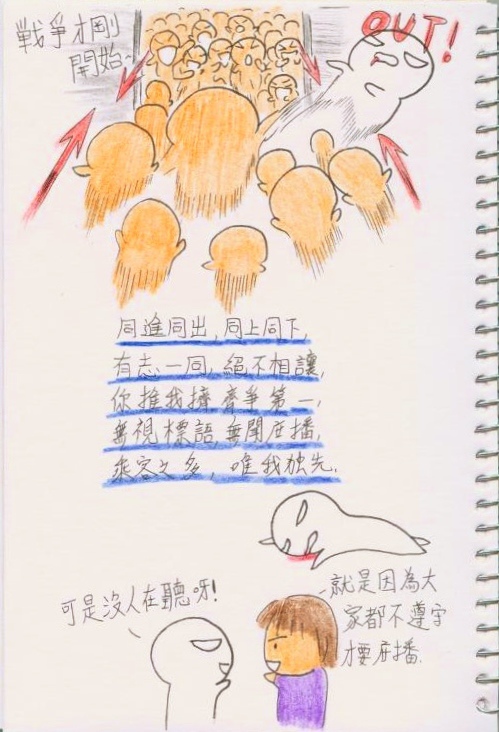 戰爭才剛
開始~
OUT!
同進同出,同上同下,
有志一同,絕不相讓,
你推我擠,齊爭第一,
無視標語,無聞広播,
乘客之多,唯我独先.
可是沒人在聽呀!
就是因為大
家都不遵守
才要広播.